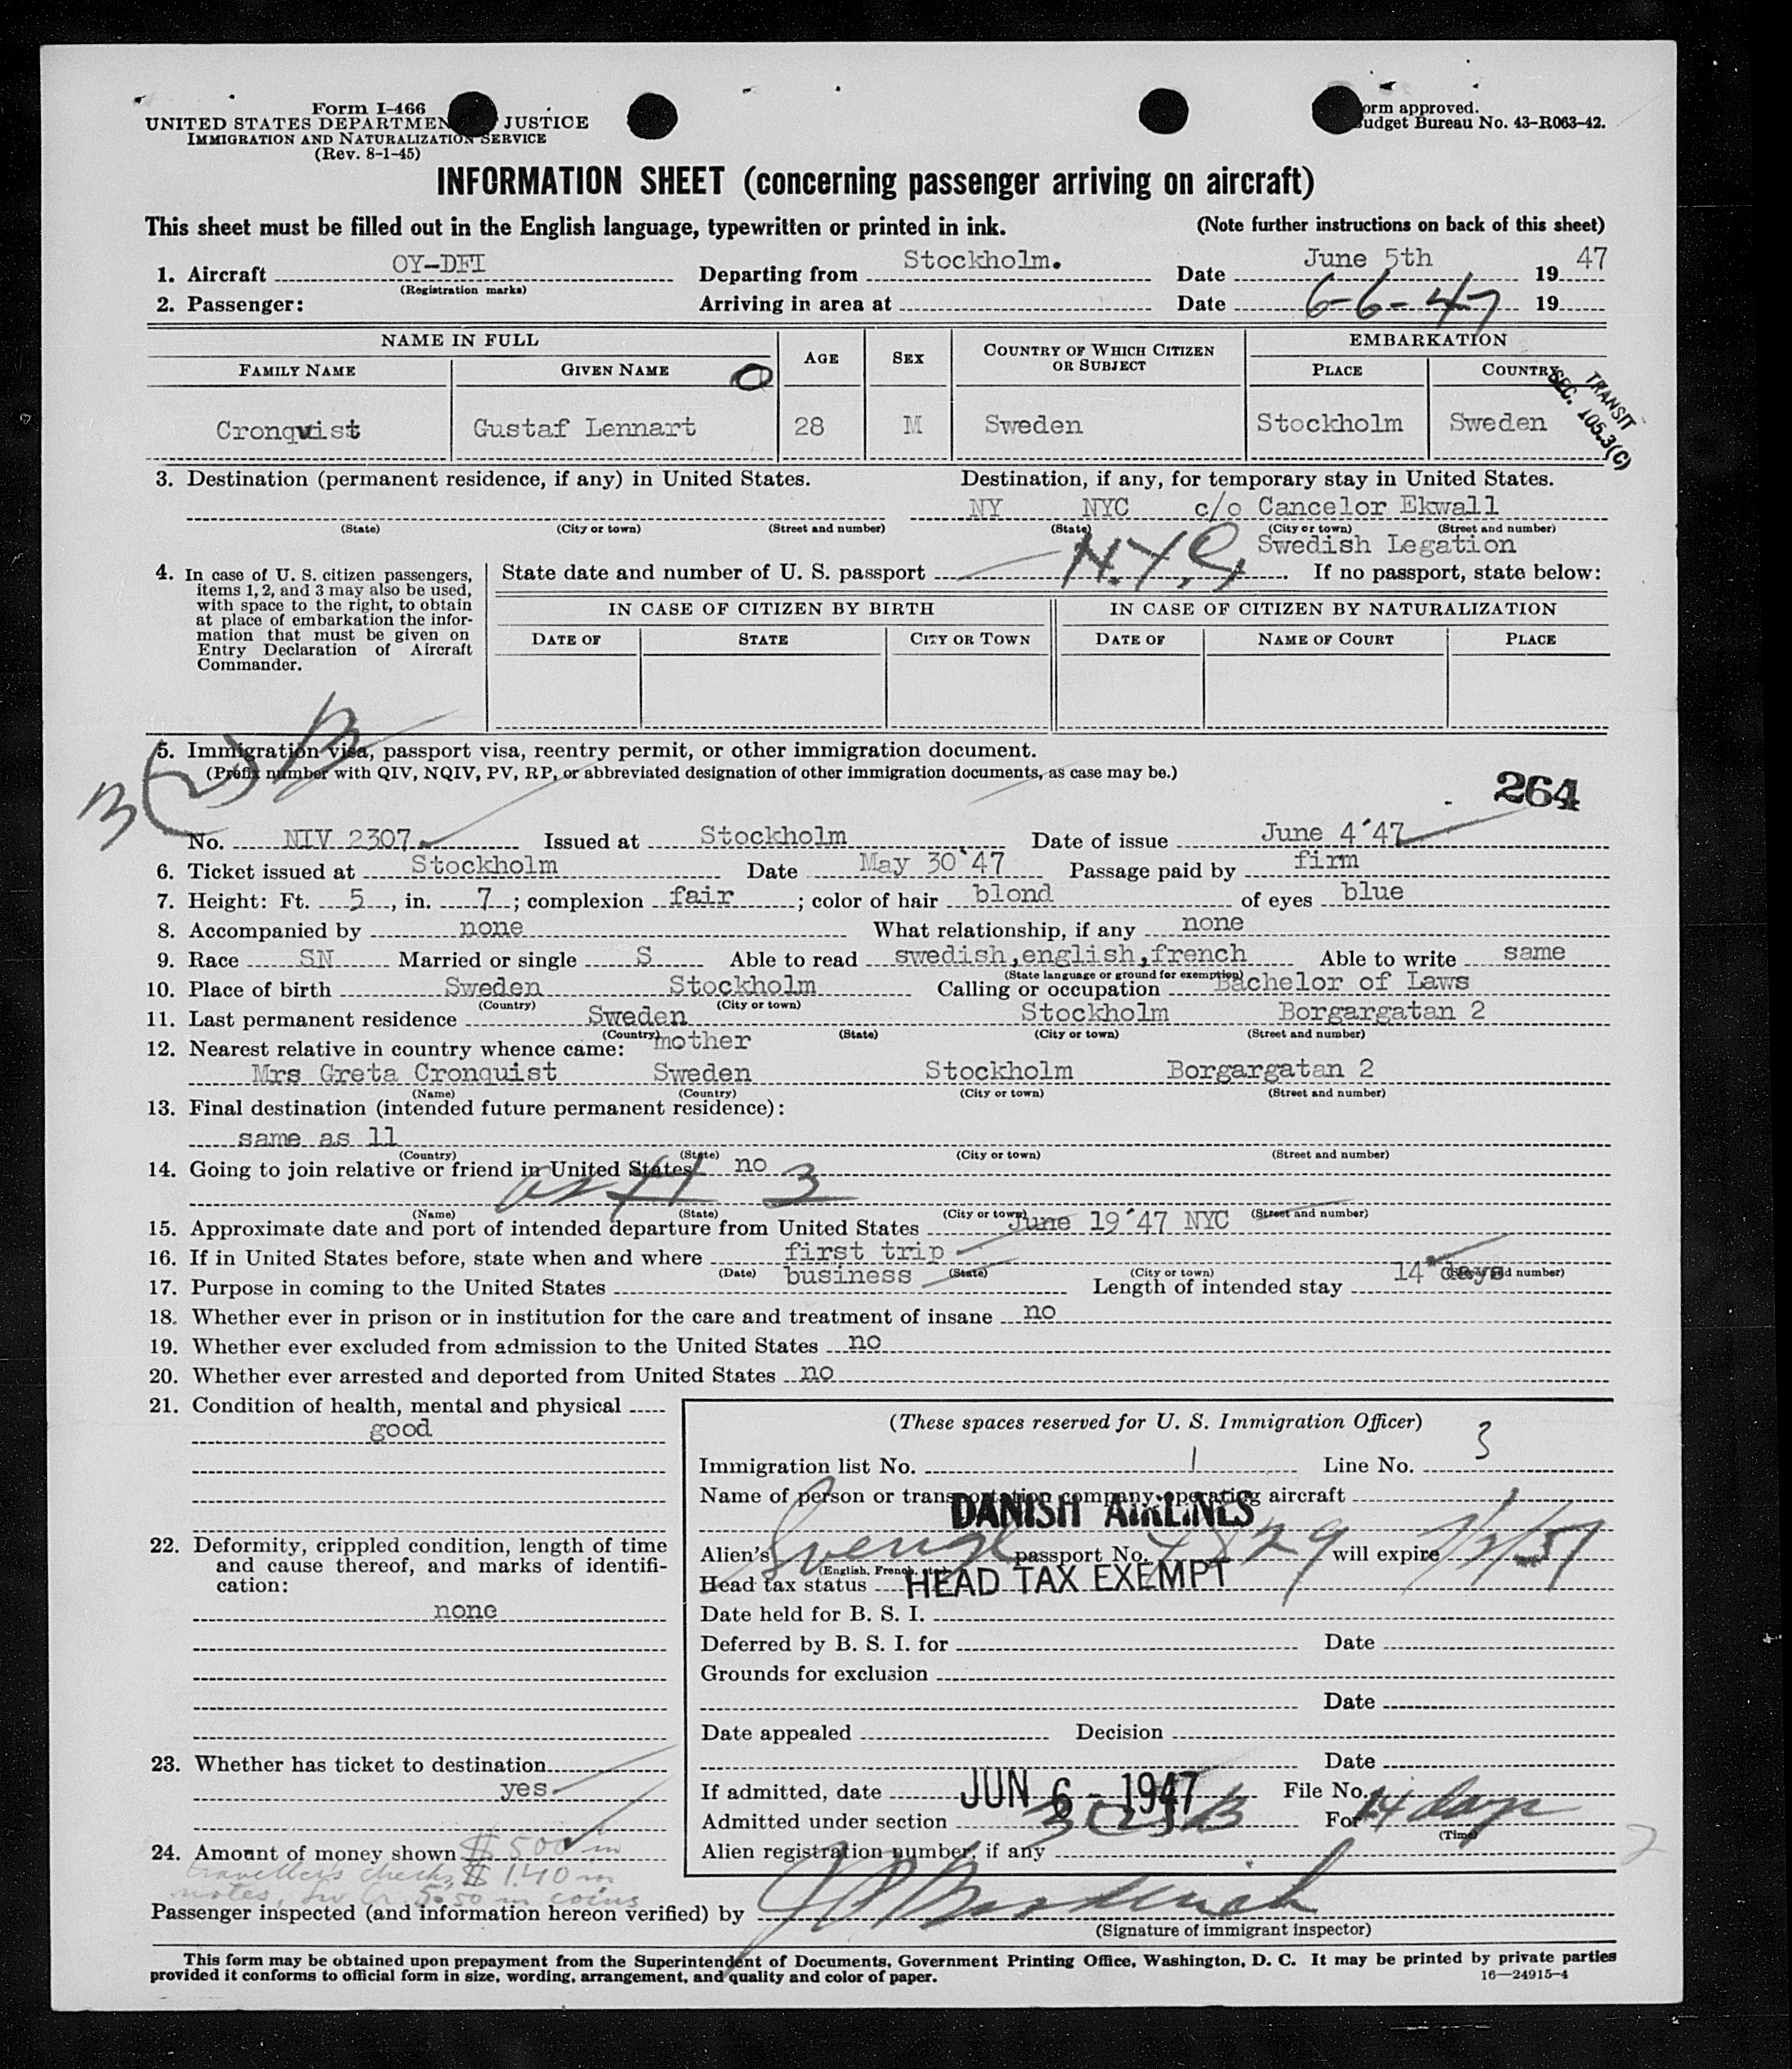 Form I-466
UNITED STATES DEPARTMEN JUSTICE
IMMIGRATION AND NATURALIZATION SERVICE
(Rev. 8-1-45)
orm approved.
udget Bureau No. 43-R063-42.
INFORMATION SHEET (concerning passenger arriving on aircraft)
This sheet must be filled out in the English language, typewritten or printed in ink. (Note further instructions on back of this sheet)
1. Aircraft OY-DFI Departing from Stockholm. Date June 5th 1947
(Registration marks)
2. Passenger: Arriving in area at Date 6-6-47 19
NAME IN FULL AGE SEX COUNTRY OF WHICH CITIZEN OR SUBJECT EMBARKATION
FAMILY NAME GIVEN NAME PLACE COUNTRY
TRANSIT
SEC. 105.3(C)
Cronqvist Gustaf Lennart 28 M Sweden Stockholm Sweden
3. Destination (permanent residence, if any) in United States. Destination, if any, for temporary stay in United States.
NY NYC c/o Cancelor Ekwall
(State) (City or town) (Street and number) (State) (City or town) (Street and number)
Swedish Legation
N.Y.C.
4. In case of U. S. citizen passengers, items 1, 2, and 3 may also be used, with space to the right, to obtain at place of embarkation the information that must be given on Entry Declaration of Aircraft Commander.
State date and number of U. S. passport If no passport, state below:
IN CASE OF CITIZEN BY BIRTH IN CASE OF CITIZEN BY NATURALIZATION
DATE OF STATE CITY OR TOWN DATE OF NAME OF COURT PLACE
3(2)B
5. Immigration visa, passport visa, reentry permit, or other immigration document.
(Prefix number with QIV, NQIV, PV, RP, or abbreviated designation of other immigration documents, as case may be.)
264
No. NIV 2307 Issued at Stockholm Date of issue June 4'47
6. Ticket issued at Stockholm Date May 30'47 Passage paid by firm
7. Height: Ft. 5, in. 7; complexion fair; color of hair blond of eyes blue
8. Accompanied by none What relationship, if any none
9. Race SN Married or single S Able to read swedish,english,french Able to write same
(State language or ground for exemption)
10. Place of birth Sweden Stockholm Calling or occupation Bachelor of Laws
(Country) (City or town)
11. Last permanent residence Sweden Stockholm Borgargatan 2
(Country) (State) (City or town) (Street and number)
12. Nearest relative in country whence came: mother
Mrs Greta Cronquist Sweden Stockholm Borgargatan 2
(Name) (Country) (City or town) (Street and number)
13. Final destination (intended future permanent residence):
same as 11
(Country) (State) (City or town) (Street and number)
14. Going to join relative or friend in United States no
3
(Name) (State) (City or town) (Street and number)
15. Approximate date and port of intended departure from United States June 19'47 NYC
16. If in United States before, state when and where first trip
(Date) (State) (City or town) (Street and number)
17. Purpose in coming to the United States business Length of intended stay 14 days
18. Whether ever in prison or in institution for the care and treatment of insane no
19. Whether ever excluded from admission to the United States no
20. Whether ever arrested and deported from United States no
21. Condition of health, mental and physical
good
22. Deformity, crippled condition, length of time and cause thereof, and marks of identification:
none
23. Whether has ticket to destination
yes.
24. Amount of money shown $ 500 in
travellers checks, $ 140 in
notes, 5.50 in coins
(These spaces reserved for U. S. Immigration Officer)
Immigration list No. 1 Line No. 3
Name of person or transportation company operating aircraft
DANISH AIRLINES
Alien's passport No. will expire
(English, French, etc.)
Head tax status HEAD TAX EXEMPT
Date held for B. S. I.
Deferred by B. S. I. for Date
Grounds for exclusion
Date
Date appealed Decision
Date
If admitted, date JUN 6 - 1947 File No.
Admitted under section 3(2)B For 14 days
(Time)
Alien registration number, if any
2
Passenger inspected (and information hereon verified) by
(Signature of immigrant inspector)
This form may be obtained upon prepayment from the Superintendent of Documents, Government Printing Office, Washington, D. C. It may be printed by private parties
provided it conforms to official form in size, wording, arrangement, and quality and color of paper. 16—24915-4